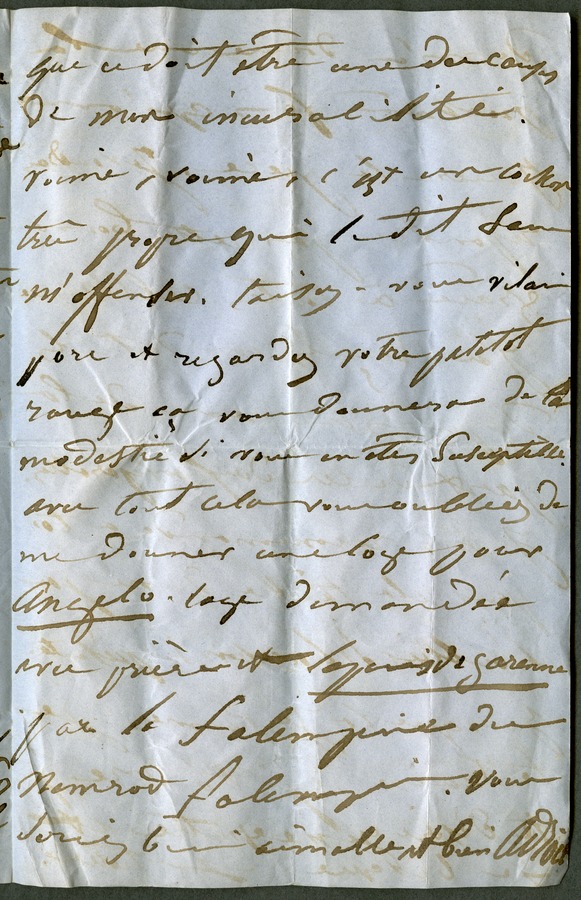 que ce doit etre une de ces coups
de mon incivilité.
vrainé, c'est un cochon
très propre qui le dit sans
m'offenser. taisez-vous vilain
porc et regardez votre paletot
rouge ça vous donnera de la
modestie si vous en etes susceptible.
avec tout cela vous oubliez de
me donner une loge pour
Angelo. loge demandée
avec prière et lapins de garenne
par le falempin du
Nemrod falempin. vous
seriez bien aimable et bien